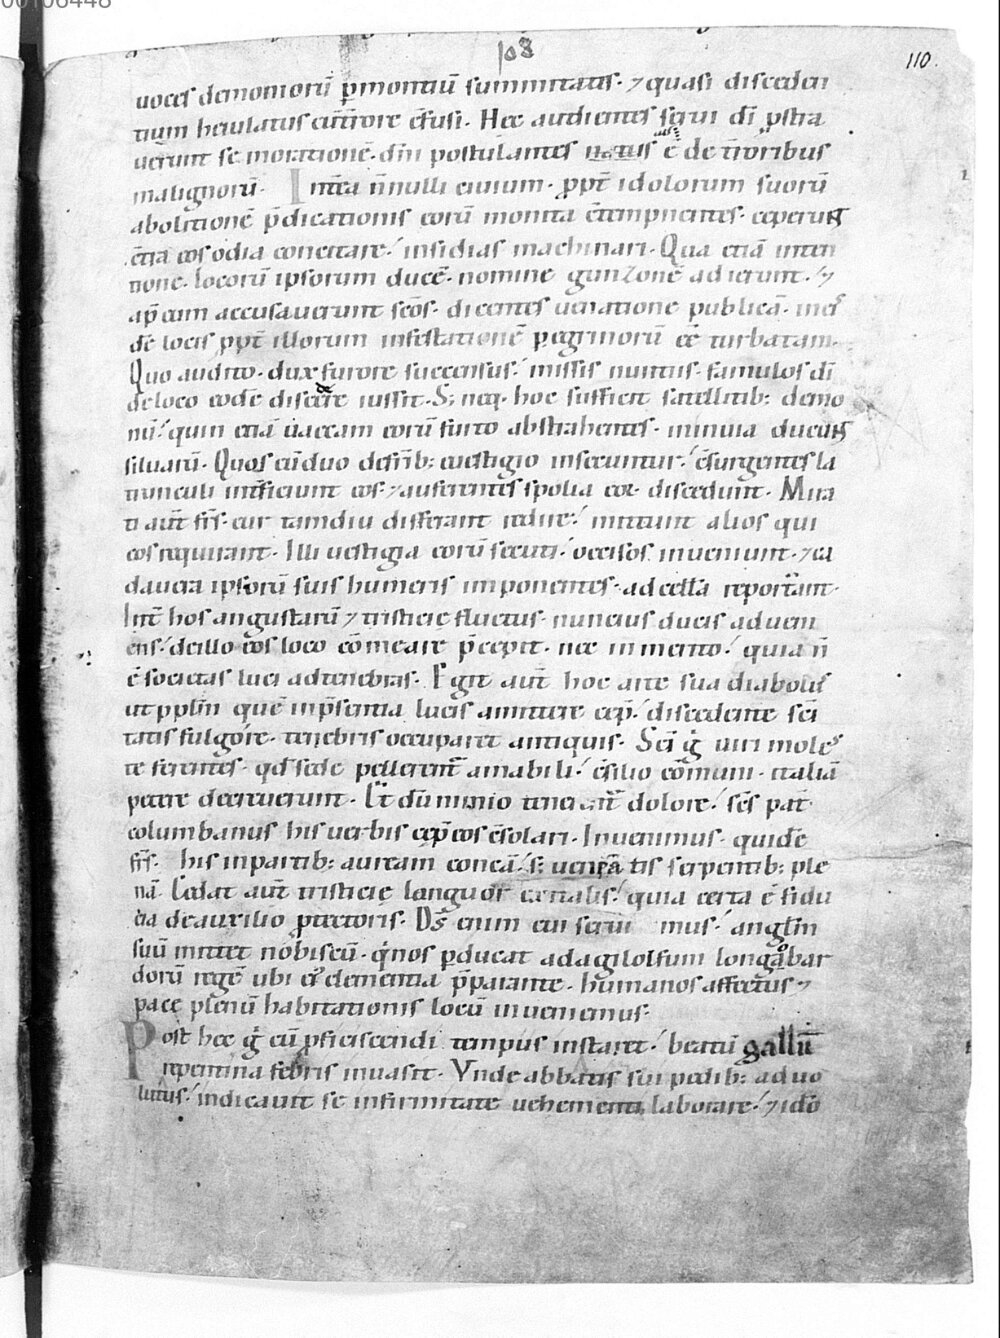 00106448
108
110.
uoces demoniorū p̲ montiū summitates· ⁊ quasi disceden
tium heiulatus cū t̄rore cōfusi. Hec audientes serui dī p̲stra
uerunt se in oratione· dn̄m postulantes ē de t̄roribus
malignorū. Int̄ea n̄nulli ciuium· p̲pt̄ idolorum suorū
abolitionē p̄dicationis eorū monita cōtempnentes· ceperunt
cōt̄a eos odia concitare / insidias machinari· Qua etiā inten
tione· locorū ipsorum ducē· nomine gunzonē adierunt / ⁊
ap̲ eum accusauerunt scōs· dicentes uenatione publicā· in eis
dē locis p̲pt̄ illorum infestationē p̲egrinorū eē turbatam.
Quo audito· dux furore succensus / missis nuntiis· famulos dī
de loco eodē discedere iussit. S; neq· hoc suffecit satellitib; demo
nū / quin etiā uaccam eorū furto abstrahentes· in inuia ducunt
siluarū. Quos cū duo de fr̄ib; e uestigio insecuntur / cōsurgentes la
trunculi int̄ficiunt eos· ⁊ auferentes spolia eor· discedunt. Mira
ti aut̄ fr̄s· cur tamdiu differant redire / mittunt alios qui
eos requirant. Illi uestigia eorū secuti / occisos inueniunt· ⁊ ca
dauera ipsorū suis humeris imponentes· ad cellā reportant.
Int̄ hos angustiarū ⁊ tristicie fluctus· nuncius ducis adueni
ens / de illo eos loco cōmeare p̄cepit· nec inmerito / quia n̄
ē societas luci ad tenebras. Egit aut̄ hoc arte sua diabolus
ut pp̲lm̄ quē in p̄sentia lucis amittere cep̲ / discedente scī
tatis fulgore· tenebris occuparet antiquis. Scī g̊ uiri moles
te ferentes· qd̄ sede pellerent̄ amabili / cōsilio cōmuni· italiā
petere decreuerunt. Et dū nimio tenerent̄ dolore / scs̄ pat̄
columbanus his uerbis cep̲ eos cōsolari. Inuenimus· quidē
fr̄s· his in partib; auream concā / s; uenenatis serpentib; ple
nā. Cedat aut̄ tristicię languor cordialis / quia certa ē fidu
cia de auxilio p̲tectoris. Ds̄ enim cui serui mus / anglm̄
suū mittet nobiscū· q̊ nos p̲ducat ad agilolfum longobar
dorū regē ubi ei clementia p̄parante· humanos affectus ⁊
pace plenū habitationis locū inueniemus.
Post hec g̊ cū p̲ficiscendi tempus instaret / beatū gallū
repentina febris inuasit. Vnde abbatis sui pedib; aduo
lutus / indicauit se infirmitate uehementi laborare / ⁊ idō